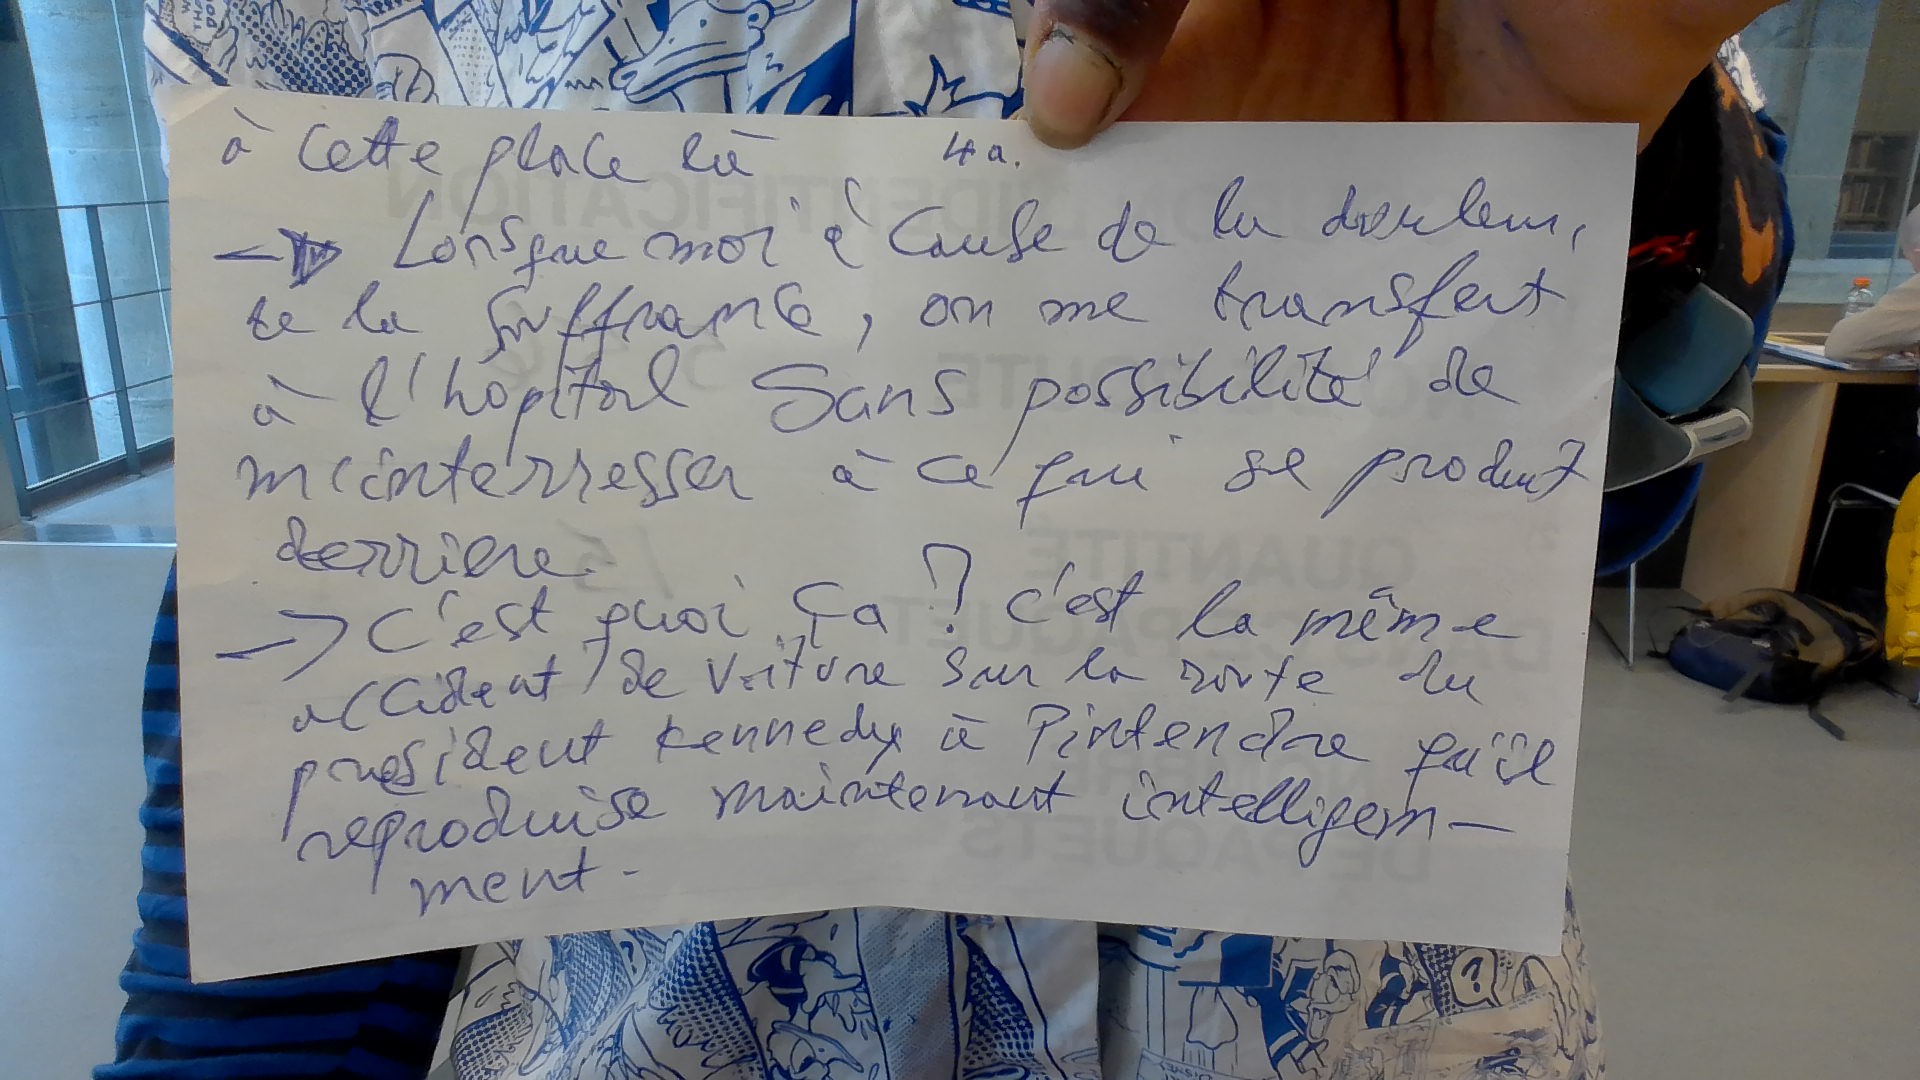 à cette place là 4a.
→ Lorsque moi à cause de la douleur,
de la suffrance, on me transfert
à l'hôpital sans possibilité de
m'interresser à ce qui se produit
derriere.
→ C'est quoi ça ? c'est la même
accident de voiture sur la route du
president Kennedy à Pintendre qu'il
reproduise maintenant intelligem-
ment.
IDENTIFICATION
QUANTITÉ
DANS CE PAQUET
NOMBRE
DE PAQUETS